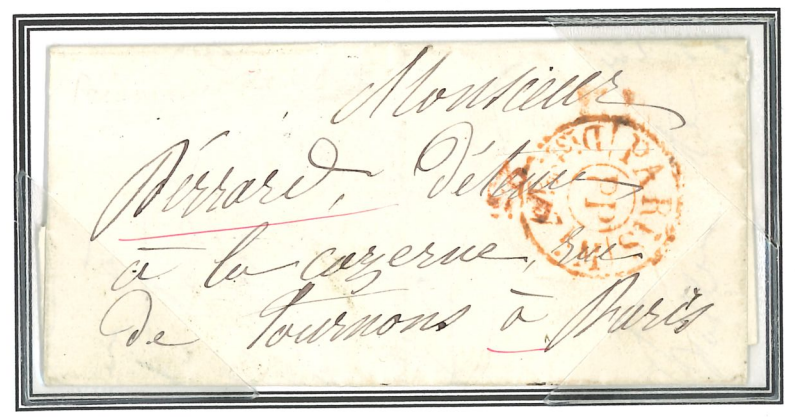 Monsieur
Bérrard, Détenu
à la cazerne, rue
de Tournons à Paris
PARIS
PP